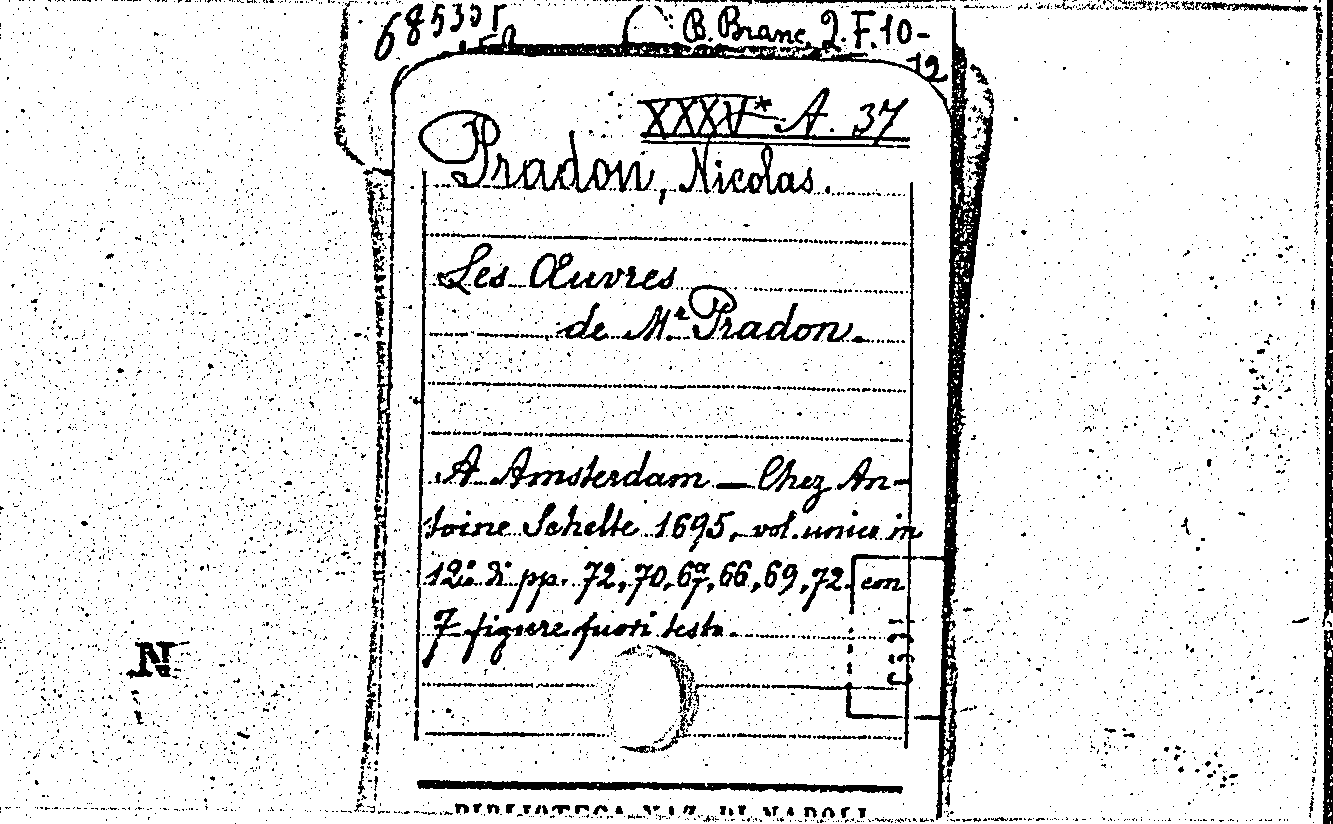 685335
B. Branc. 2. F. 10-
12
XXXV* A. 37
Pradon, Nicolas.
Les Œuvres
de Mr. Pradon.
A Amsterdam – Chez An-
toine Schelte 1695, vol. unico in
12º di pp. 72, 70, 67, 66, 69, 72. con
7 figure fuori testo.
N
BIBLIOTECA NAZ. DI NAPOLI